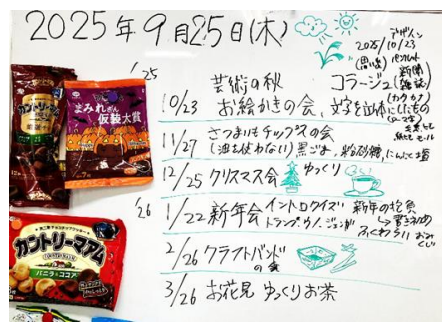 2025年9月25日(木)
デザイン
2025/10/23
パンフレット
新聞
雑誌
'25
芸術の秋 コラージュ
10/23 お絵かきの会、文字を
11/27 さつまいもチップスの会
(油を使わない)黒ごま、粉砂糖、にんにく塩
12/25 クリスマス会 ゆっくり
'26
1/22 新年会 イントロクイズ 新年の抱負
トランプ ウノ・ジェンガ 書き初め
ふくわらい おみくじ
2/26 クラフトバンドの会
3/26 お花見 ゆっくりお茶
カントリーマアム
まみれさん
仮装大賞
カントリーマアム
バニラ&ココア